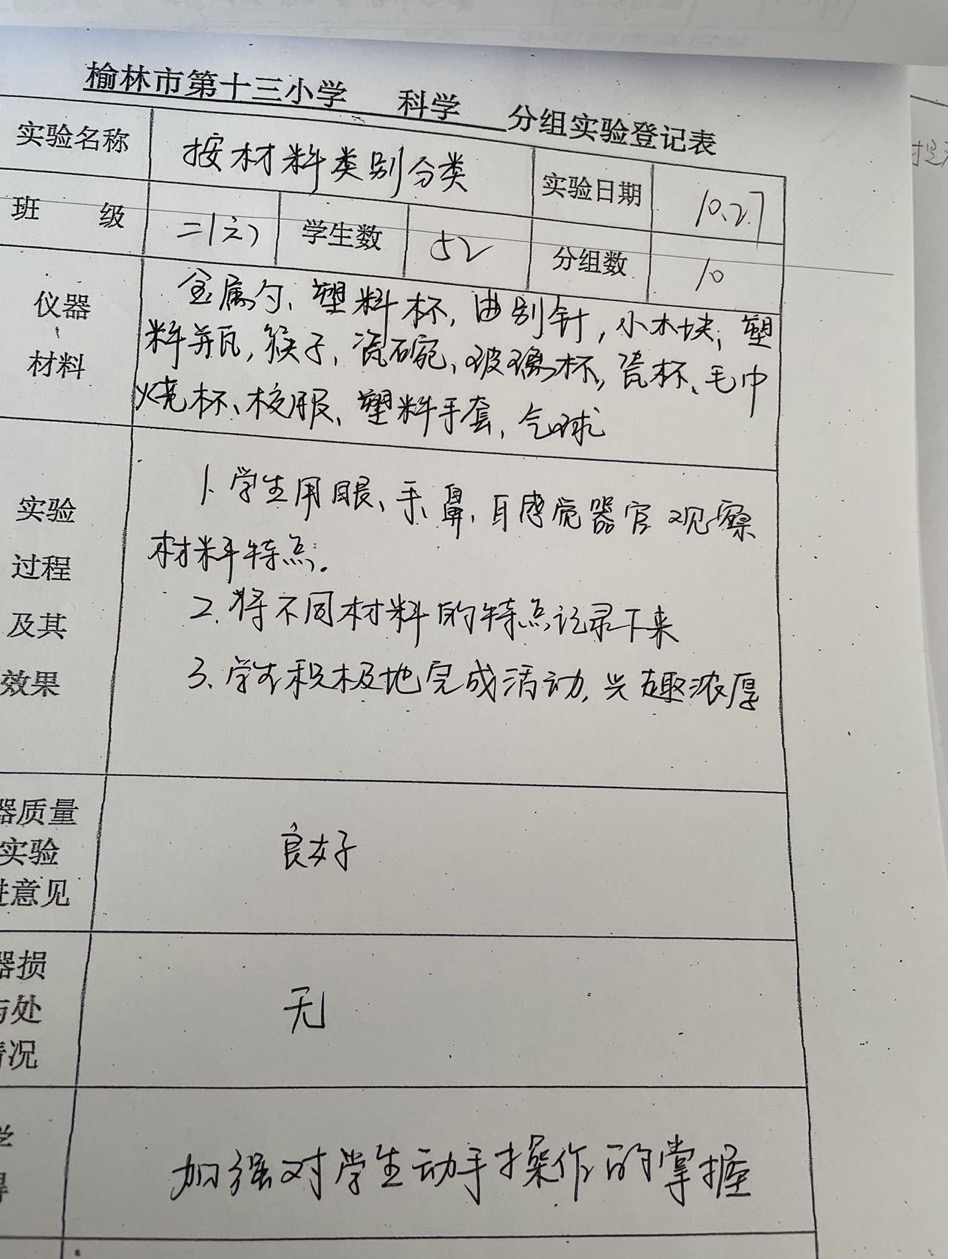 榆林市第十三小学 科学 分组实验登记表
实验名称 按材料类别分类 实验日期 10.27
班 级 学生数 52 分组数 10
仪器、材料
金属勺、塑料杯，曲别针，小木块，塑
料瓶，筷子、瓷碗、玻璃杯，瓷杯、毛巾
烧杯、校服、塑料手套，气球
实验
过程
及其
效果
1.学生用眼、手、鼻、耳感觉器官观察
材料特点.
2.将不同材料的特点记录下来
3.学生积极地完成活动，兴趣浓厚
器质量
实验
进意见
良好
器损
与处
情况
无
学
得
加强对学生动手操作的掌握